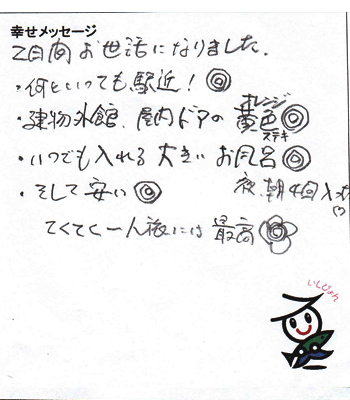 幸せメッセージ
2日間お世話になりました。
・何といっても駅近！
・建物外館、屋内ドアの黄色
オレンジ
ステキ
・いつでも入れる大きいお風呂
・そして安い
夜、朝4回入
てくてく一人旅には最高
いしぴょん